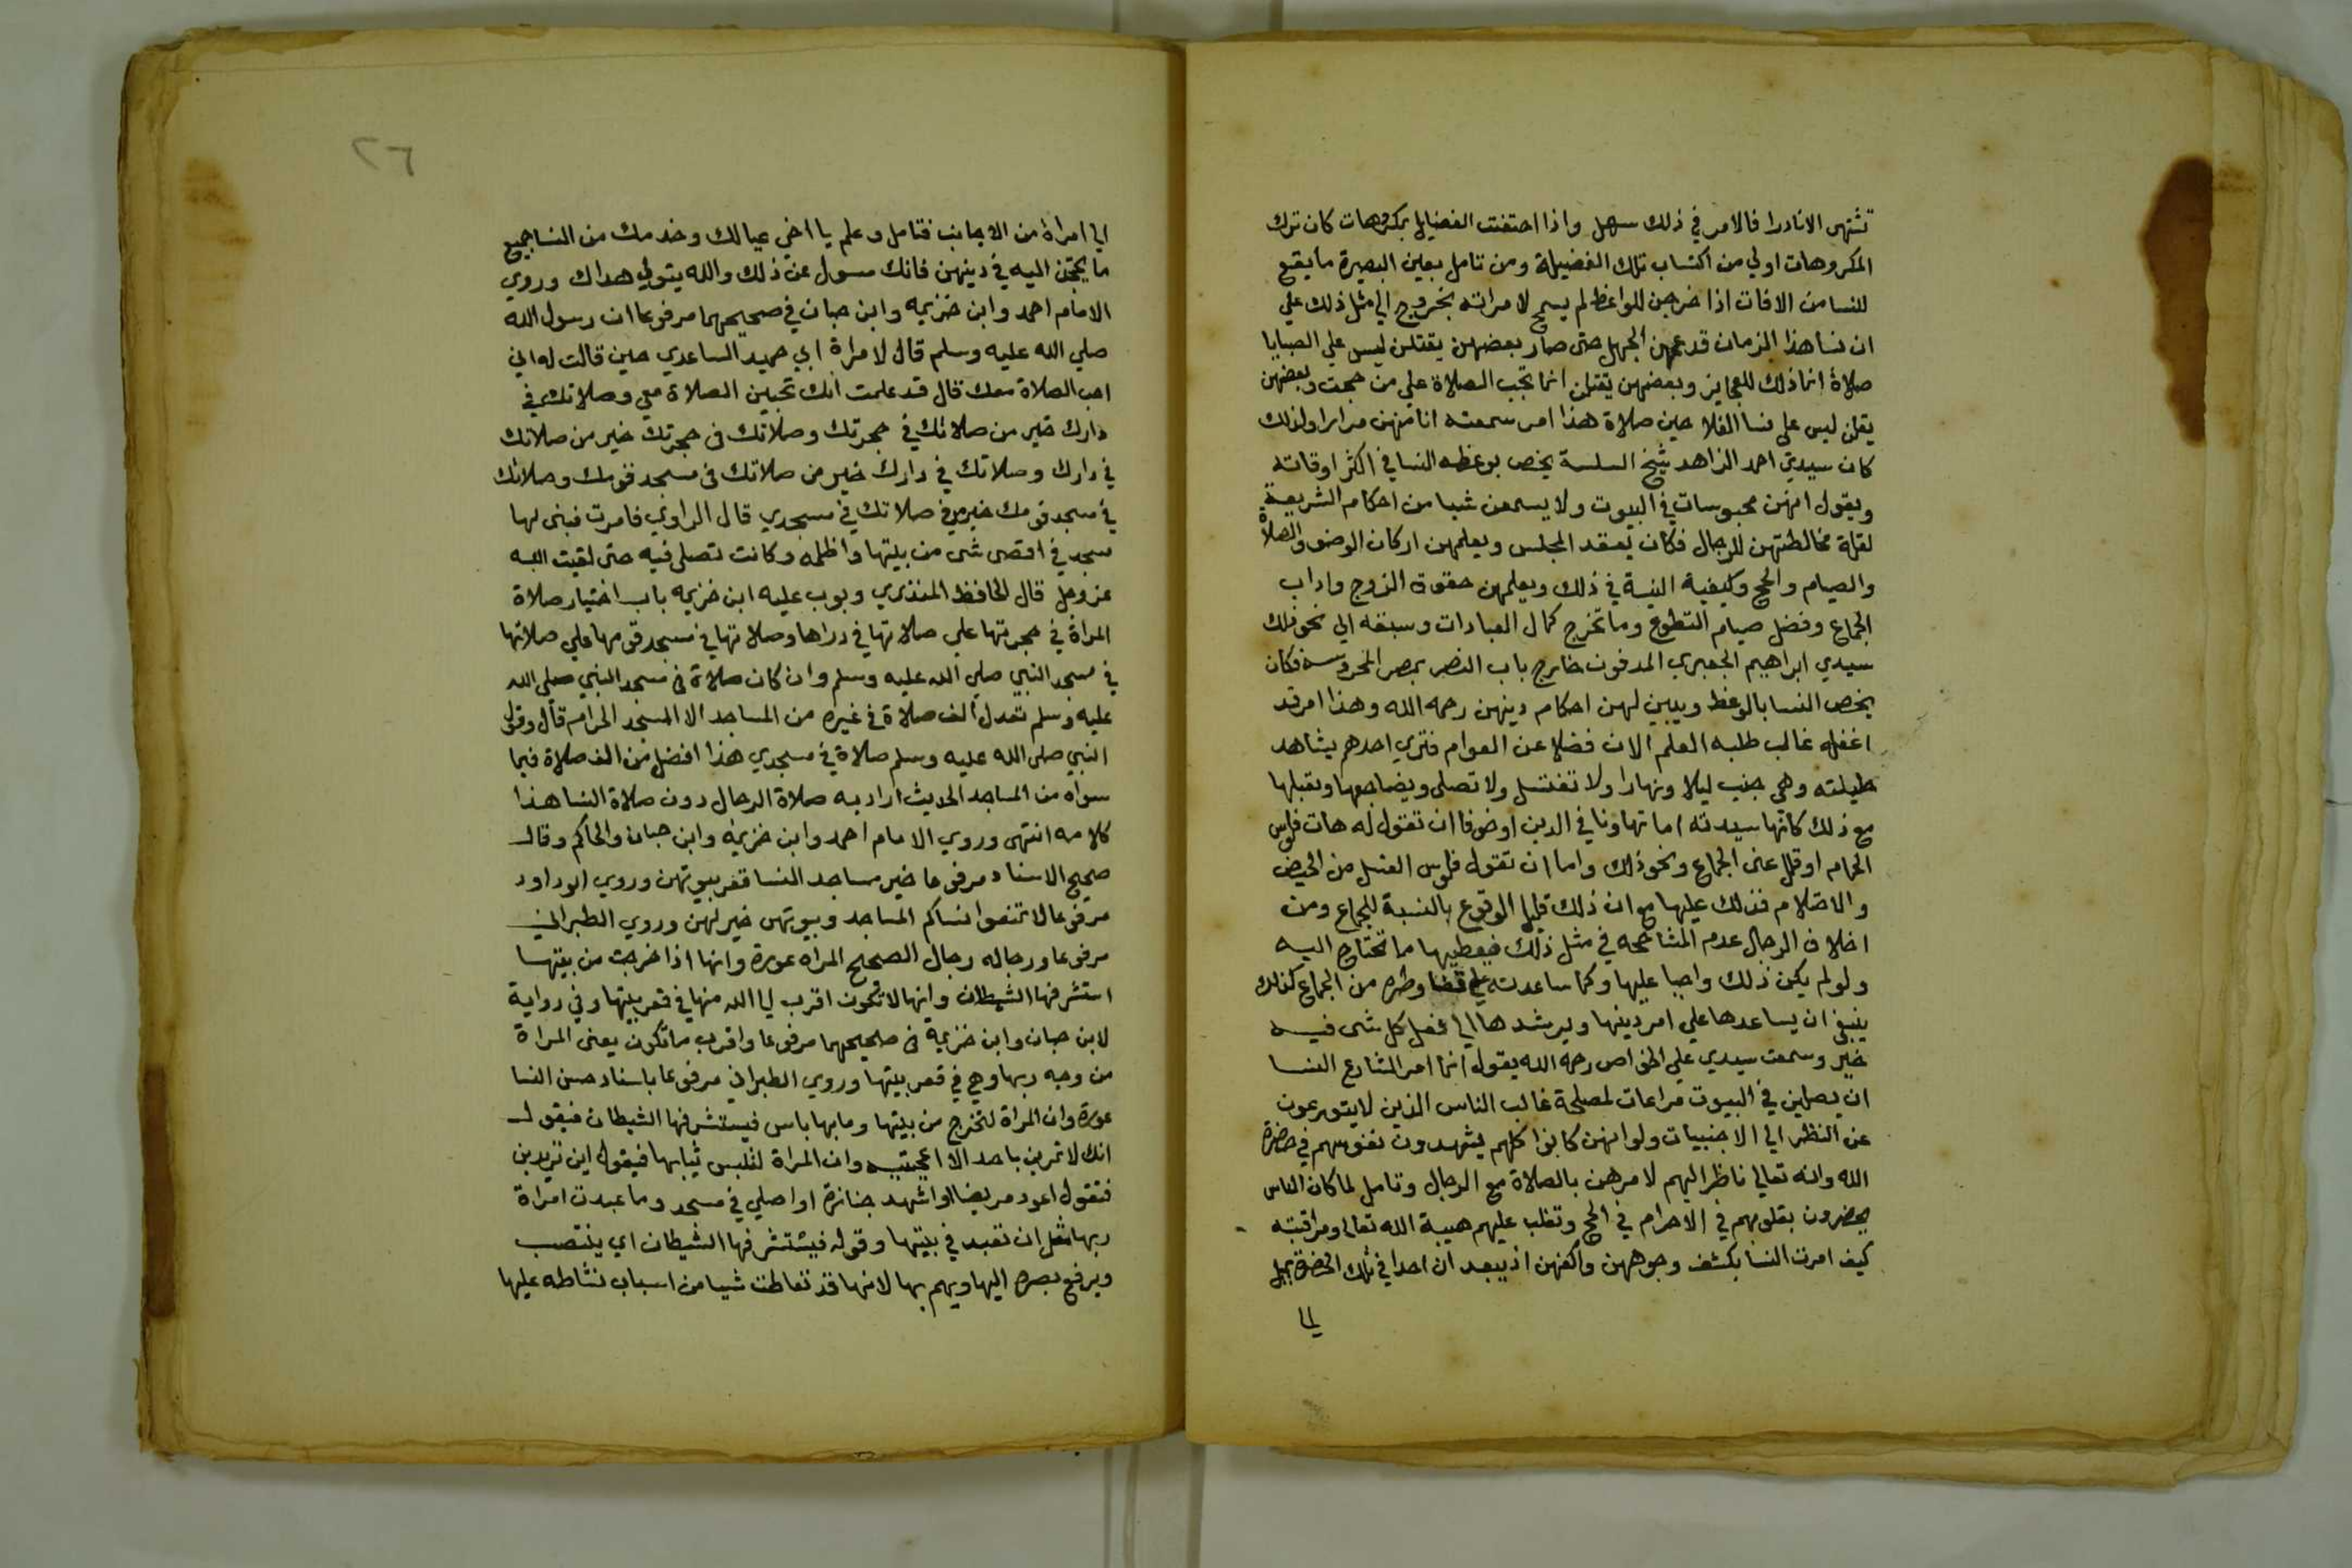 تشتهى الا نادرا فالامر في ذلك سهل واذا احتفت الفضايل بمكروهات كان ترك
المكروهات اولي من اكتساب تلك الفضيلة ومن تامل بعين البصيرة ما يقع
للنسا من الافات اذا خرجن للواعظ لم يسمح لامراته بخروج الي مثل ذلك علي
ان نسا هذا الزمان قد عمهن الجهل حتى صار بعضهن يقلن ليس علي الصبايا
صلاة انما ذلك للعجايز وبعضهن يقلن انما تجب الصلاة علي من حجت وبعضهن
يقلن ليس علي نسا الفلاحين صلاة هذا امر سمعته انا منهن مرارا ولذلك
كان سيدي احمد الزاهد شيخ السلسة يخص بوعظه النسا في اكثر اوقاته
ويقول انهن محبوسات في البيوت ولا يسمعن شيا من احكام الشريعة
لقلة مخالطتهن للرجال فكان يعقد المجلس ويعلمهن اركان الوضو والصلاة
والصيام والحج وكيفية النية في ذلك ويعلمهن حقوق الزوج واداب
الجماع وفضل صيام التطوع وما تخرج كمال العبادات وسبقه الي نحو ذلك
سيدي ابراهيم الجعبري المدفون خارج باب النصر بمصر المحروسه فكان
يخص النسا بالوعظ ويبين لهن احكام دينهن رحمه الله وهذا امر قد
اغفله غالب طلبه العلم الان فضلا عن العوام فتري احدهم يشاهد
حليلته وهي جنب ليلا ونهارا ولا تغتسل ولا تصلى ويضاجعها ويقبلها
مع ذلك كانها سيدته اما تهاونا في الدين او خوفا ان تقول له هات فلوس
الحمام او قلل عنى الجماع ونحو ذلك واما ان تقول فلوس الغسل من الحيض
والاحتلام فذلك عليها مع ان ذلك قليل الوقوع بالنسبة للجماع ومن
اخلاق الرجال عدم المشاححه في مثل ذلك فيعطيها ما تحتاج اليه
ولو لم يكن ذلك واجبا عليها وكما ساعدته علي قضا وطره من الجماع كذلك
ينبغي ان يساعدها علي امر دينها ويرشدها الي فعل كل شى فيه
خير وسمعت سيدي علي الخواص رحمه الله يقول انما امر الشارع النسا
ان يصلين في البيوت مراعات لمصلحة غالب الناس الذين لا يتورعون
عن النظر الي الاجنبيات ولو انهن كانوا كلهم يشهدون نفوسهم في حضرة
الله وانه تعالي ناظر اليهم لامرهن بالصلاة مع الرجال وتامل لما كان الناس
يحضرون بقلوبهم في الاحرام في الحج وتغلب عليهم هيبة الله تعالى ومراقبته
كيف امرت النسا بكشف وجوههن واكفهن اذ يبعد ان احدا في تلك الحضرة يميل
الي
٢٦
الي امراة من الاجانب فتامل وعلم يا اخي عيالك وخدمك من النسا جميع
ما يحتجن اليه في دينهن فانك مسول عن ذلك والله يتولي هداك وروي
الامام احمد وابن خزيمه وابن حبان في صحيحهما مرفوعا ان رسول الله
صلي الله عليه وسلم قال لامراة ابي حميد الساعدي حين قالت له اني
احب الصلاة معك قال قد علمت انك تحبين الصلاة معي وصلاتك في
دارك خير من صلاتك في حجرتك وصلاتك فى حجرتك خير من صلاتك
في دارك وصلاتك في دارك خير من صلاتك فى مسجد قومك وصلاتك
في مسجد قومك خير من صلاتك في مسجدي قال الراوي فامرت فبنى لها
مسجد في اقصى شى من بيتها واظلمه وكانت تصلى فيه حتى لقيت الله
عز وجل قال الحافظ المنذري وبوب عليه ابن خزيمه باب اختيار صلاة
المراة في حجرتها علي صلاتها في دراها وصلاتها في مسجد قومها علي صلاتها
في مسجد النبي صلي الله عليه وسلم وان كان صلاة فى مسجد النبي صلى الله
عليه وسلم تعدل الف صلاة في غيره من المساجد الا المسجد الحرام قال وقول
النبي صلى الله عليه وسلم صلاة في مسجدي هذا افضل من الف صلاة فيما
سواه من المساجد الحديث اراد به صلاة الرجال دون صلاة النسا هذا
كلامه انتهى وروي الامام احمد وابن خزيمه وابن حبان والحاكم وقال
صحيح الاسناد مرفوعا خير مساجد النسا قعر بيوتهن وروي ابو داود
مرفوعا لا تمنعوا نساكم المساجد وبيوتهن خير لهن وروي الطبراني
مرفوعا ورجاله رجال الصحيح المراه عورة وانها اذا خرجت من بيتها
استشرفها الشيطان وانها لا تكون اقرب الي الله منها في قعر بيتها وفي رواية
لابن حبان وابن خزيمة فى صحيحهما مرفوعا واقرب ما تكون يعنى المراة
من وجه ربها وهي في قعر بيتها وروي الطبراني مرفوعا باسناد حسن النسا
عورة وان المراة لتخرج من بيتها وما بها باس فيستشرفها الشيطان فيقول
انك لا تمرين باحد الا اعجبتيه وان المراة لتلبس ثيابها فيقول اين تريدين
فتقول اعود مريضا او اشهد جنازة او اصلي في مسجد وما عبدت امراة
ربها مثل ان تعبد في بيتها وقوله فيستشرفها الشيطان اي ينتصب
ويرفع بصره اليها ويهم بها لانها قد تعاطت شيا من اسباب نشاطه عليها